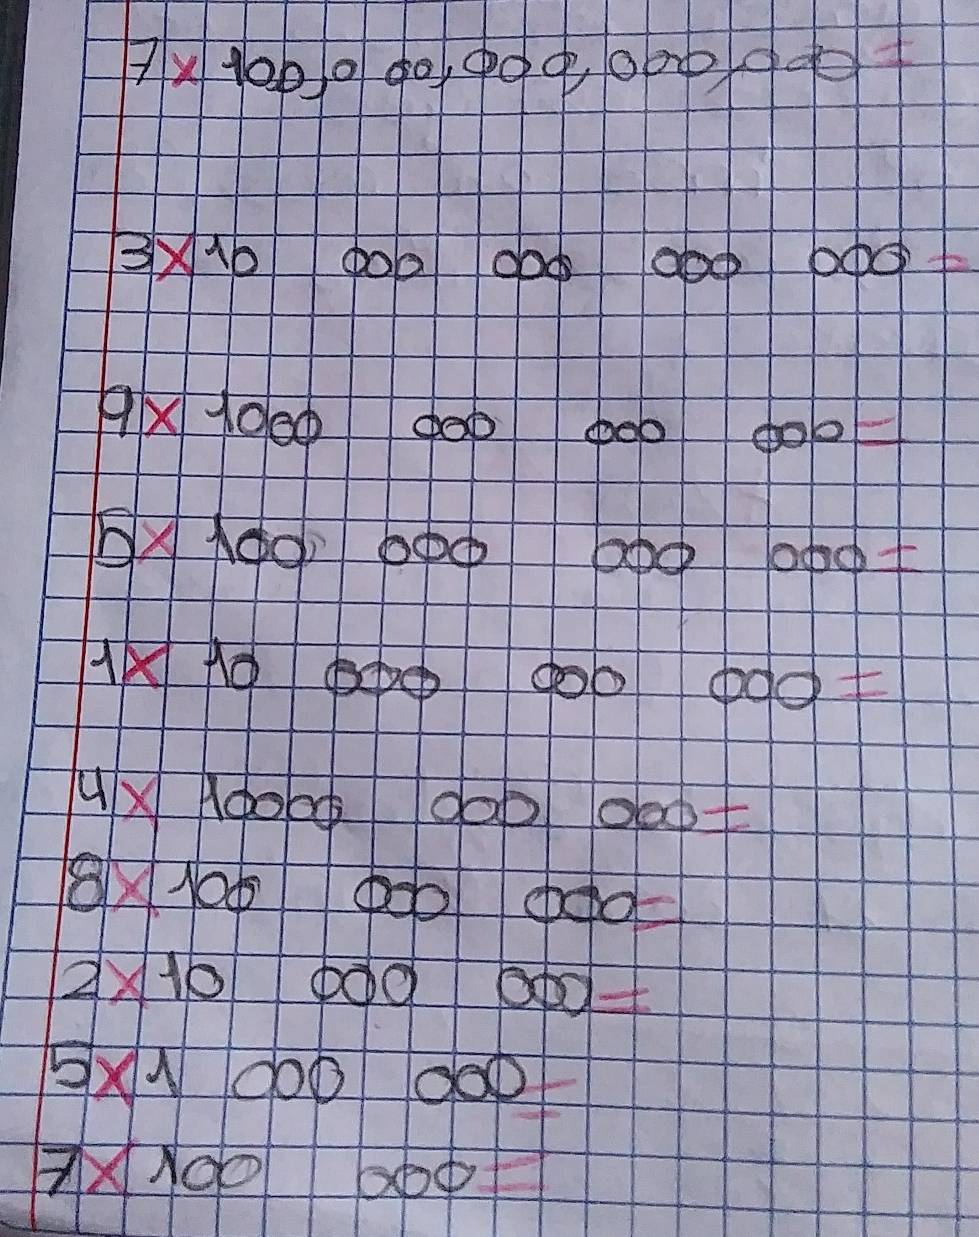 7 x 100,000,000,000,000 =
3 x 10 000 000 000 000 =
9 x 1000 000 000 000 =
5 x 100 000 000 000 =
1 x 10 000 000 000 =
4 x 10000 000 000 =
8 x 100 000 000 =
2 x 10 000 000 =
5 x 1 000 000 =
7 x 100 000 =